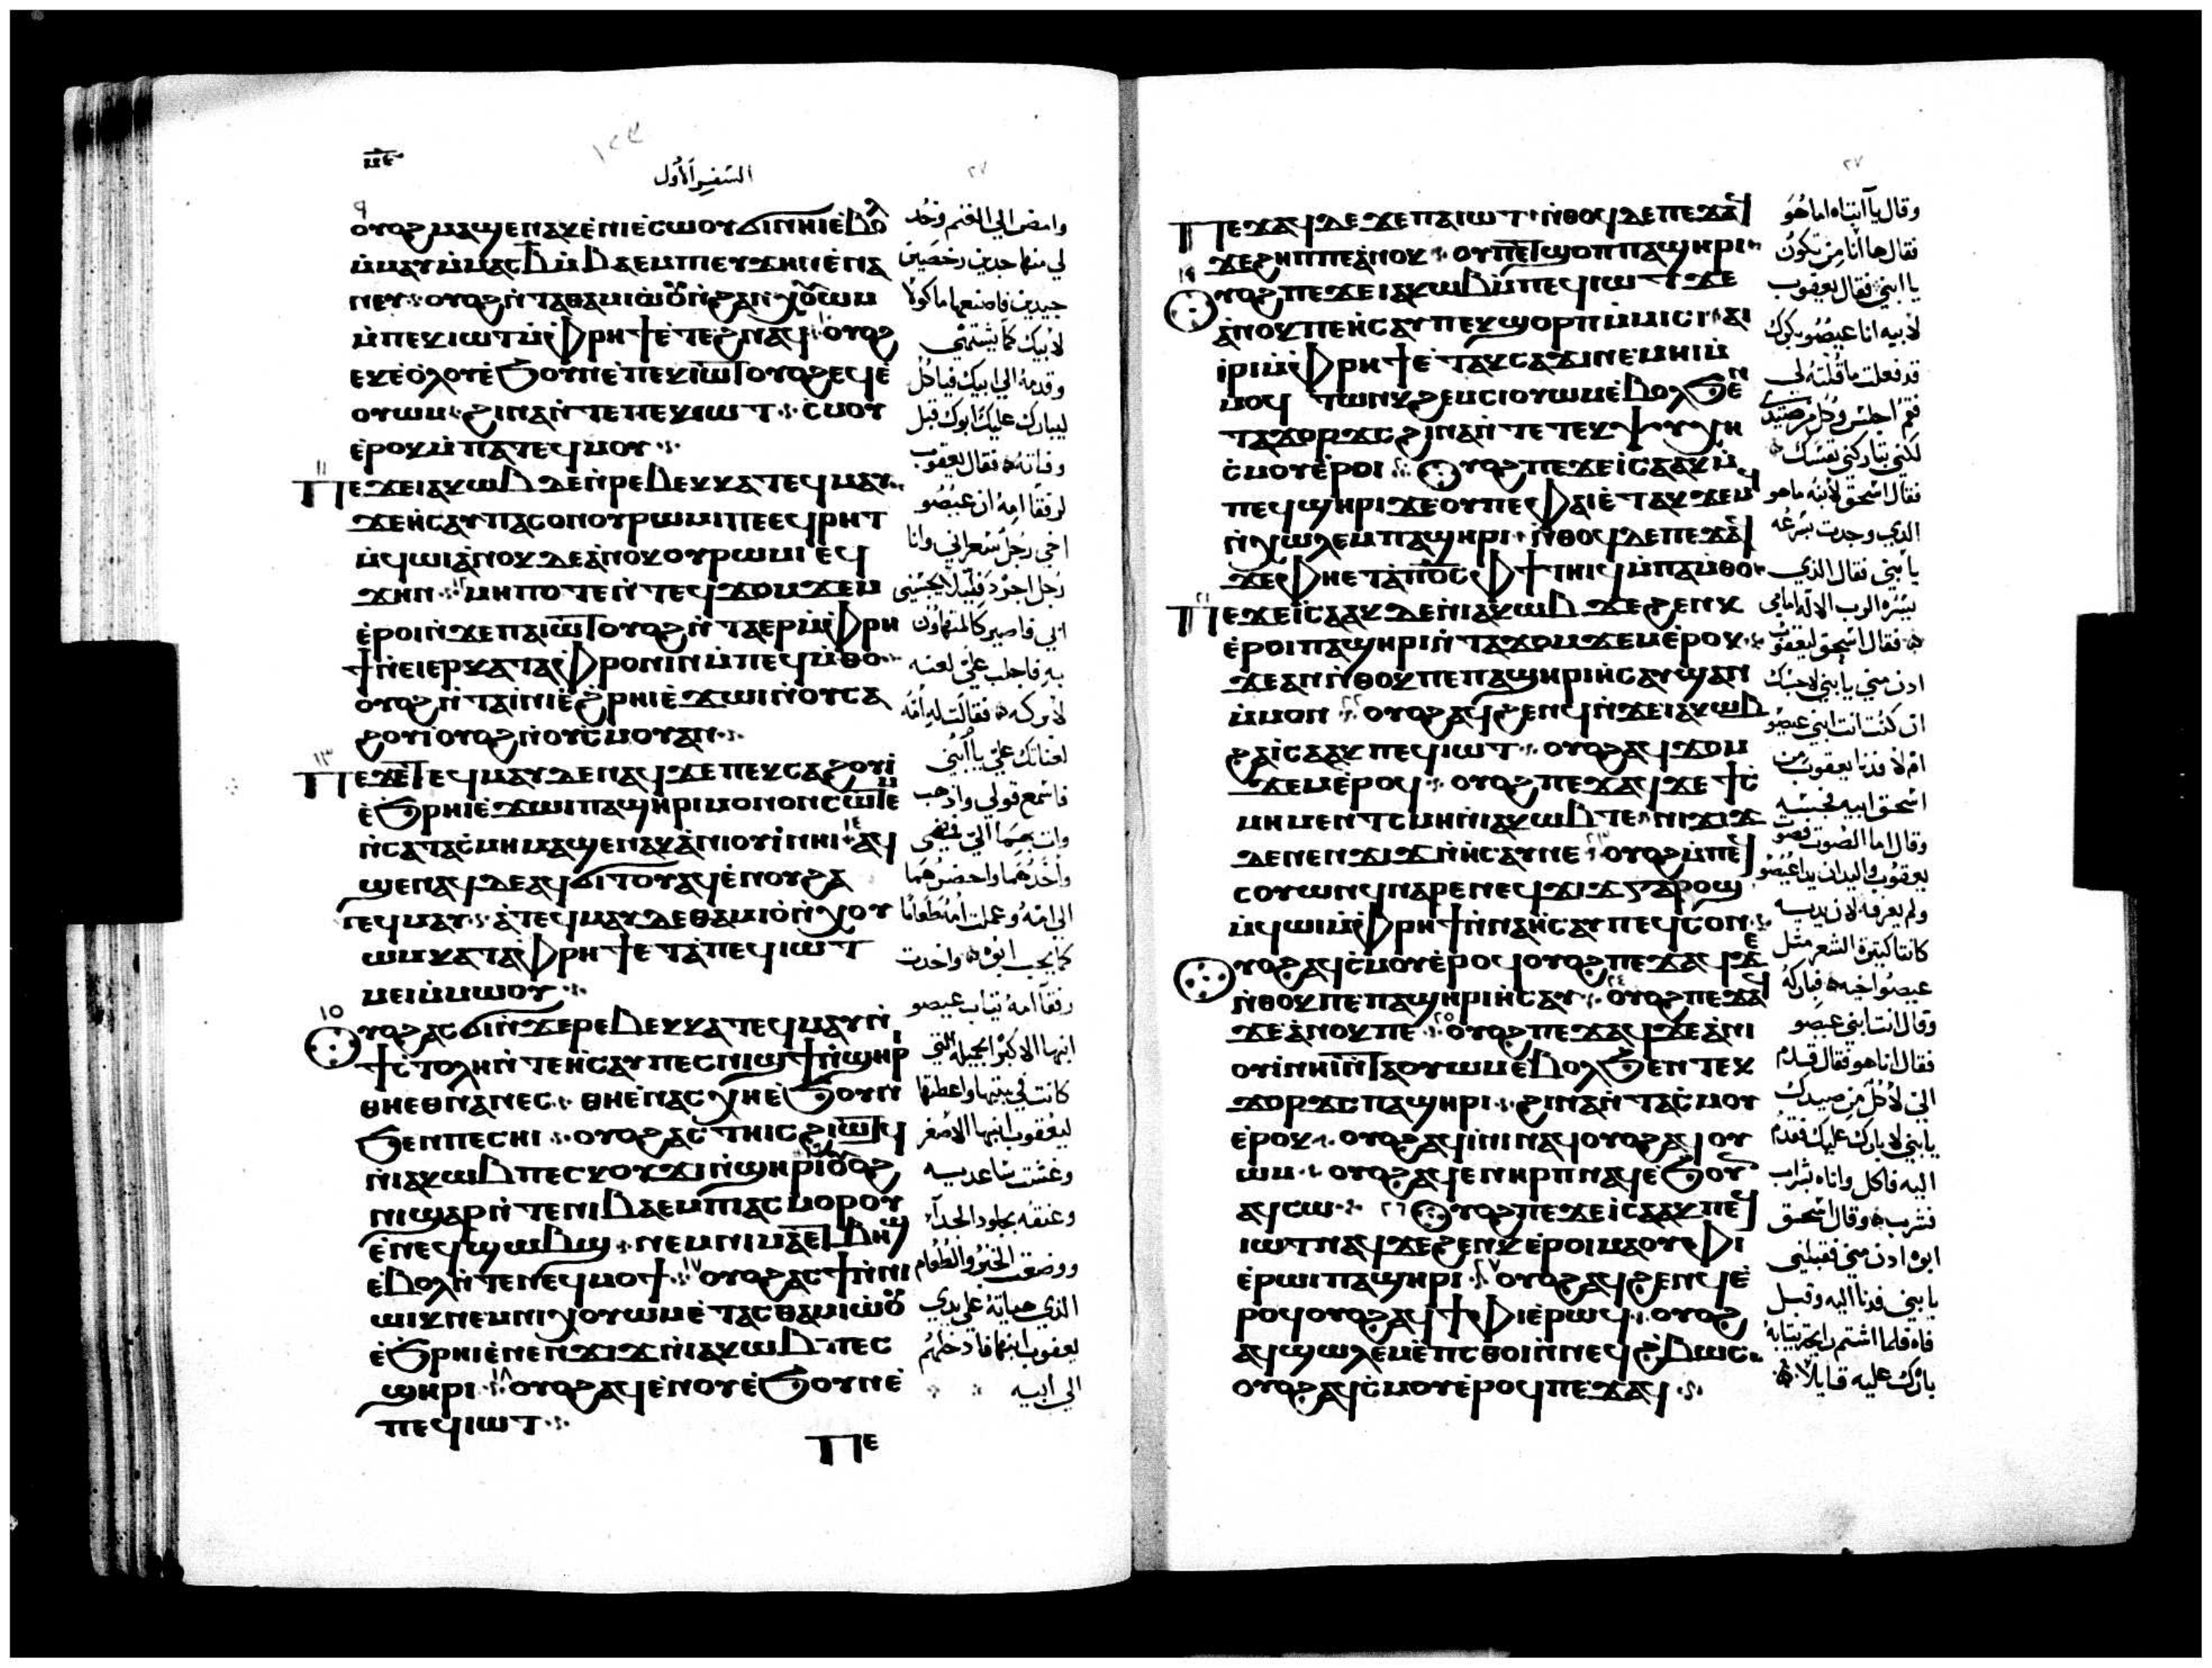 ⲙⲉ
السفر الأول
٢٧
٩
ⲟⲩⲟϩ ⲙⲁϣⲉⲛⲁⲕ ⲉ̀ⲛⲓⲉ̀ⲥⲱⲟⲩ ϭⲓ ⲛⲏⲓ ⲉ̀ⲃⲟⲗ
ⲙ̀ⲙⲁⲩ ⲙ̀ⲙⲁⲥ ⲃ̅ ⲙ̀ⲃⲁⲉⲙⲡⲓ ⲉⲩϫⲏⲛ ⲉ̀ⲛⲁ
ⲛⲉⲩ ⲟⲩⲟϩ ⲛ̀ⲧⲁⲑⲁⲙⲓⲱⲟⲩ ⲛ̀ϩⲁⲛϭⲓⲟⲩⲱⲙ
ⲙ̀ⲡⲉⲕⲓⲱⲧ ⲙ̀ⲫⲣⲏϯ ⲉ̀ⲧⲉϩⲛⲁϥ ⲟⲩⲟϩ
ⲉⲕⲉ̀ⲟⲗⲟⲩ ⲉ̀ϧⲟⲩⲛ ⲉ̀ⲡⲉⲕⲓⲱⲧ ⲟⲩⲟϩ ⲉϥⲉ̀
ⲟⲩⲱⲙ ϩⲓⲛⲁ ⲛ̀ⲧⲉ ⲡⲉⲕⲓⲱⲧ ⲥ̀ⲙⲟⲩ
ⲉ̀ⲣⲟⲕ ⲙ̀ⲡⲁⲧⲉϥⲙⲟⲩ
١١
Ⲡⲉϫⲉ ⲓⲁⲕⲱⲃ ⲇⲉ ⲛ̀ⲣⲉⲃⲉⲕⲕⲁ ⲧⲉϥⲙⲁⲩ
ϫⲉ ⲏ̀ⲥⲁⲩ ⲡⲁⲥⲟⲛ ⲟⲩⲣⲱⲙⲓ ⲡⲉ ⲉϥⲣⲏⲧ
ⲙ̀ϥⲱⲓ ⲁ̀ⲛⲟⲕ ⲇⲉ ⲁ̀ⲛⲟⲕ ⲟⲩⲣⲱⲙⲓ ⲉϥ
ϫⲏⲛ ١٢ ⲙⲏⲡⲟⲧⲉ ⲛ̀ⲧⲉϥϫⲟⲙϫⲉⲙ
ⲉ̀ⲣⲟⲓ ⲛ̀ϫⲉ ⲡⲁⲓⲱⲧ ⲟⲩⲟϩ ⲛ̀ⲧⲁⲉⲣ ⲙ̀ⲫⲣⲏ
ϯ ⲛ̀ⲉⲓⲉⲣⲕⲁⲧⲁⲫⲣⲟⲛⲓⲛ ⲙ̀ⲡⲉϥⲙ̀ⲑⲟ
ⲟⲩⲟϩ ⲛ̀ⲧⲁⲓ̀ⲛⲓ ⲉ̀ϩ̀ⲣⲏⲓ ⲉ̀ϫⲱⲓ ⲛ̀ⲟⲩⲥⲁ
ϩⲟⲩⲓ̀ ⲟⲩⲟϩ ⲛ̀ⲟⲩⲥ̀ⲙⲟⲩ ⲁⲛ
١٣
Ⲡⲉϫⲉ ⲧⲉϥⲙⲁⲩ ⲇⲉ ⲛⲁϥ ϫⲉ ⲡⲉⲕⲥⲁϩⲟⲩⲓ̀
ⲉ̀ϧ̀ⲣⲏⲓ ⲉ̀ϫⲱⲓ ⲡⲁϣⲏⲣⲓ ⲙⲟⲛⲟⲛ ⲥⲱⲧⲉⲙ
ⲛ̀ⲥⲁ ⲧⲁⲥ̀ⲙⲏ ⲙⲁϣⲉⲛⲁⲕ ⲁ̀ⲛⲓⲟⲩⲓ̀ ⲛⲏⲓ ١٤ ⲁϥ
ϣⲉⲛⲁϥ ⲇⲉ ⲁϥϭⲓⲧⲟⲩ ⲁϥⲉ̀ⲛⲟⲩ ϩⲁ
ⲧⲉϥⲙⲁⲩ ⲁ̀ⲧⲉϥⲙⲁⲩ ⲇⲉ ⲑⲁⲙⲓⲟ̀ ⲛ̀ϭⲓⲟⲩ
ⲱⲙ ⲕⲁⲧⲁ ⲫⲣⲏϯ ⲉ̀ⲧⲁ ⲡⲉϥⲓⲱⲧ
ⲙⲉⲓ ⲙ̀ⲙⲱⲟⲩ
١٥
Ⲟⲩⲟϩ ⲁⲥϭⲓ ⲛ̀ϫⲉ ⲣⲉⲃⲉⲕⲕⲁ ⲧⲉϥⲙⲁⲩ ⲛ̀
ϯⲥ̀ⲧⲟⲗⲏ ⲛ̀ⲧⲉ ⲏ̀ⲥⲁⲩ ⲡⲉⲥⲛⲓϣϯ ⲛ̀ϣⲏⲣⲓ
ⲑⲏⲉⲑⲛⲁⲛⲉⲥ ⲑⲏⲉ̀ⲛⲁⲥⲭⲏ ⲉ̀ϧⲟⲩⲛ
ϧⲉⲛ ⲡⲉⲥⲏⲓ ⲟⲩⲟϩ ⲁⲥⲧⲏⲓⲥ ϩⲓⲱⲧϥ
ⲛ̀ⲓⲁⲕⲱⲃ ⲡⲉⲥⲕⲟⲩϫⲓ ⲛ̀ϣⲏⲣⲓ ⲟⲩⲟϩ
ⲛⲓϣⲁⲣ ⲛ̀ⲧⲉ ⲛⲓⲃⲁⲉⲙⲡⲓ ⲁⲥⲙⲟⲣⲟⲩ
ⲉ̀ⲛⲉϥϣⲱⲃϣ ⲛⲉⲙ ⲛⲓⲙⲁ ⲉⲧⲃⲏϣ
ⲉⲃⲟⲗ ⲛ̀ⲧⲉ ⲛⲉϥⲙⲟϯ ١٧ ⲟⲩⲟϩ ⲁⲥϯ ⲛ̀ⲛⲓ
ⲱⲓⲕ ⲛⲉⲙ ⲛⲓϭⲓⲟⲩⲱⲙ ⲉ̀ⲧⲁⲥⲑⲁⲙⲓⲱⲟⲩ
ⲉ̀ϧ̀ⲣⲏⲓ ⲉ̀ⲛⲉⲛϫⲓϫ ⲛ̀ⲓⲁⲕⲱⲃ ⲡⲉⲥ
ϣⲏⲣⲓ ١٨ ⲟⲩⲟϩ ⲁϥⲉ̀ⲛⲟⲩ ⲉ̀ϧⲟⲩⲛ ⲉ̀
ⲡⲉϥⲓⲱⲧ
ⲡⲉ
وامض الي الغنم وخد
لي منها جديين رخصين
جيدين فاصنعها ماكولا
لابيك كما يشتهي
وقدمه الي ابيك فياكل
ليبارك عليك ابوك قبل
وفاته فقال يعقوب
لرفقا امه ان عيصو
اخي رجل شعراني وانا
رجل اجرد فلعله يجسني
ابي فاصير كالمتهاون
به فاجلب علي لعنه
لا بركه فقالت له امه
لعناتك علي يا ابني
فاسمع قولي واذهب
وات بهما الي فمضى
واخدهما واحضرهما
الي امه وعملت امه طعاما
كما يحب ابوه واخدت
رفقا امه ثياب عيصو
ابنها الاكبر الجميله التي
كانت في بيتها واعطتها
ليعقوب ابنها الاصغر
وغشت ساعديه
وعنقه بجلود الجدآ
ووضعت الخبز والطعام
الذي هياته على يدي
يعقوب ابنها فادخلهم
الي ابيه
٢٧
Ⲡⲉϫⲁϥ ⲇⲉ ϫⲉ ⲡⲁⲓⲱⲧ ⲛ̀ⲑⲟϥ ⲇⲉ ⲡⲉϫⲁϥ
ϫⲉ ϩⲏⲡⲡⲉ ⲁ̀ⲛⲟⲕ ⲟⲩ ⲡⲉⲧϣⲟⲡ ⲡⲁϣⲏⲣⲓ
١٩
Ⲟⲩⲟϩ ⲡⲉϫⲉ ⲓⲁⲕⲱⲃ ⲙ̀ⲡⲉϥⲓⲱⲧ ϫⲉ
ⲁ̀ⲛⲟⲕ ⲡⲉ ⲏ̀ⲥⲁⲩ ⲡⲉⲕϣⲟⲣⲡ ⲙ̀ⲙⲓⲥⲓ ⲁⲓ
ⲓ̀ⲣⲓ ⲙ̀ⲫⲣⲏϯ ⲉ̀ⲧⲁⲕⲥⲁϫⲓ ⲛⲉⲙⲏⲓ ⲙ̀
ⲙⲟϥ ⲧⲱⲛⲕ ϩⲉⲙⲥⲓ ⲟⲩⲱⲙ ⲉ̀ⲃⲟⲗ ϧⲉⲛ
ⲧⲁϫⲟⲣϫⲥ ϩⲓⲛⲁ ⲛ̀ⲧⲉ ⲧⲉⲕⲯⲩⲭⲏ
ⲥ̀ⲙⲟⲩ ⲉ̀ⲣⲟⲓ ٢٠ Ⲟⲩⲟϩ ⲡⲉϫⲉ ⲓ̀ⲥⲁⲁⲕ ⲙ̀
ⲡⲉϥϣⲏⲣⲓ ϫⲉ ⲟⲩ ⲡⲉ ⲫⲁⲓ ⲉ̀ⲧⲁⲕϫⲉⲙϥ
ⲛ̀ⲭⲱⲗⲉⲙ ⲡⲁϣⲏⲣⲓ ⲛ̀ⲑⲟϥ ⲇⲉ ⲡⲉϫⲁϥ
ϫⲉ ⲫⲏⲉⲧⲁ ⲡϭⲟⲥ ⲫϯ ⲧⲏⲓϥ ⲙ̀ⲡⲁⲙ̀ⲑⲟ
٢١
Ⲡⲉϫⲉ ⲓ̀ⲥⲁⲁⲕ ⲇⲉ ⲛ̀ⲓⲁⲕⲱⲃ ϫⲉ ϧⲉⲛⲕ
ⲉ̀ⲣⲟⲓ ⲡⲁϣⲏⲣⲓ ⲛ̀ⲧⲁϫⲟⲙϫⲉⲙ ⲉ̀ⲣⲟⲕ
ϫⲉ ⲁⲛ ⲛ̀ⲑⲟⲕ ⲡⲉ ⲡⲁϣⲏⲣⲓ ⲏ̀ⲥⲁⲩ ϣⲁⲛ
ⲙ̀ⲙⲟⲛ ٢٢ ⲟⲩⲟϩ ⲁϥϧⲉⲛⲧϥ ⲛ̀ϫⲉ ⲓⲁⲕⲱⲃ
ϩⲁ ⲓ̀ⲥⲁⲁⲕ ⲡⲉϥⲓⲱⲧ ⲟⲩⲟϩ ⲁϥϫⲟⲙ
ϫⲉⲙ ⲉ̀ⲣⲟϥ ⲟⲩⲟϩ ⲡⲉϫⲁϥ ϫⲉ ϯⲥ̀
ⲙⲏ ⲙⲉⲛ ⲧ̀ⲥⲙⲏ ⲛ̀ⲓⲁⲕⲱⲃ ⲧⲉ ⲛⲓϫⲓϫ
ⲇⲉ ⲛⲉⲛϫⲓϫ ⲛ̀ⲏ̀ⲥⲁⲩ ⲛⲉ ٢٣ ⲟⲩⲟϩ ⲙ̀ⲡⲉϥ
ⲥⲟⲩⲱⲛϥ ⲛⲁⲣⲉ ⲛⲉϥϫⲓϫ ⲅⲁⲣ ⲟϣ
ⲙ̀ϥⲱⲓ ⲙ̀ⲫⲣⲏϯ ⲛ̀ⲛⲁ ⲏ̀ⲥⲁⲩ ⲡⲉϥⲥⲟⲛ
Ⲟⲩⲟϩ ⲁϥⲥ̀ⲙⲟⲩ ⲉ̀ⲣⲟϥ ⲟⲩⲟϩ ⲡⲉϫⲁϥ ϫⲉ
ⲛ̀ⲑⲟⲕ ⲡⲉ ⲡⲁϣⲏⲣⲓ ⲏ̀ⲥⲁⲩ ٢٤ ⲟⲩⲟϩ ⲡⲉϫⲁϥ
ϫⲉ ⲁ̀ⲛⲟⲕ ⲡⲉ ٢٥ ⲟⲩⲟϩ ⲡⲉϫⲁϥ ϫⲉ ⲁ̀ⲛⲓ
ⲟⲩⲓ̀ ⲛⲏⲓ ⲛ̀ⲧⲁⲟⲩⲱⲙ ⲉ̀ⲃⲟⲗ ϧⲉⲛ ⲧⲉⲕ
ϫⲟⲣϫⲥ ⲡⲁϣⲏⲣⲓ ϩⲓⲛⲁ ⲛ̀ⲧⲁⲥ̀ⲙⲟⲩ
ⲉ̀ⲣⲟⲕ ⲟⲩⲟϩ ⲁϥⲓ̀ⲛⲓ ⲛⲁϥ ⲟⲩⲟϩ ⲁϥⲟⲩ
ⲱⲙ ⲟⲩⲟϩ ⲁϥⲉⲛ ⲏⲣⲡ ⲛⲁϥ ⲉ̀ϧⲟⲩⲛ
ⲁϥⲥⲱ ٢٦ Ⲟⲩⲟϩ ⲡⲉϫⲉ ⲓ̀ⲥⲁⲁⲕ ⲡⲉϥ
ⲓⲱⲧ ⲛⲁϥ ϫⲉ ϧⲉⲛⲕ ⲉ̀ⲣⲟⲓ ⲙⲁ ⲟⲩⲫⲓ
ⲉ̀ⲣⲱⲓ ⲡⲁϣⲏⲣⲓ ٢٧ ⲟⲩⲟϩ ⲁϥϧⲉⲛⲧϥ ⲉ̀
ⲣⲟϥ ⲟⲩⲟϩ ⲁϥϯⲫⲓ ⲉ̀ⲣⲱϥ ⲟⲩⲟϩ
ⲁϥϣⲱⲗⲉⲙ ⲉ̀ⲡⲥ̀ⲑⲟⲓ ⲛ̀ⲛⲉϥϩ̀ⲃⲱⲥ
ⲟⲩⲟϩ ⲁϥⲥ̀ⲙⲟⲩ ⲉ̀ⲣⲟϥ ⲡⲉϫⲁϥ
وقال يا ابتاه اما هو
فقال ها انا من تكون
يا ابني فقال يعقوب
لابيه انا عيصو بكرك
قد فعلت ما قلته لي
فقم اجلس وكل من صيدي
لكي تباركني نفسك
فقال اسحق لابنه ما هو
الذي وجدت بسرعه
يا بني فقال الذي
يسره الرب الاله امامي
فقال اسحق ليعقوب
ادن مني يا بني لاجسك
ان كنت انت ابني عيصو
ام لا فدنا يعقوب من
اسحق ابيه فجسه
وقال اما الصوت فصوت
يعقوب واليدان يدا عيصو
ولم يعرفه لان يديه
كانتا كثيرة الشعر مثل
عيصو اخيه فباركه
وقال انت ابني عيصو
فقال انا هو فقال قدم
الي لاكل من صيدك
يا بني لابارك عليك فقدم
اليه فاكل واتاه بشراب
فشرب وقال اسحق
ابوه ادن مني فقبلني
يا بني فدنا اليه وقبل
فاه فلما اشتم رايحة ثيابه
بارك عليه قايلا